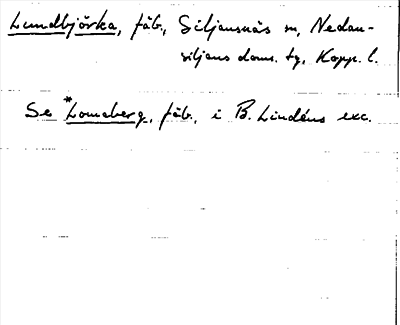 Lundbjörka, fäb., Siljansnäs sn, Nedan-
siljans doms. tg, Kopp. l.
Se *Lomaberg, fäb., i B. Lindéns exc.